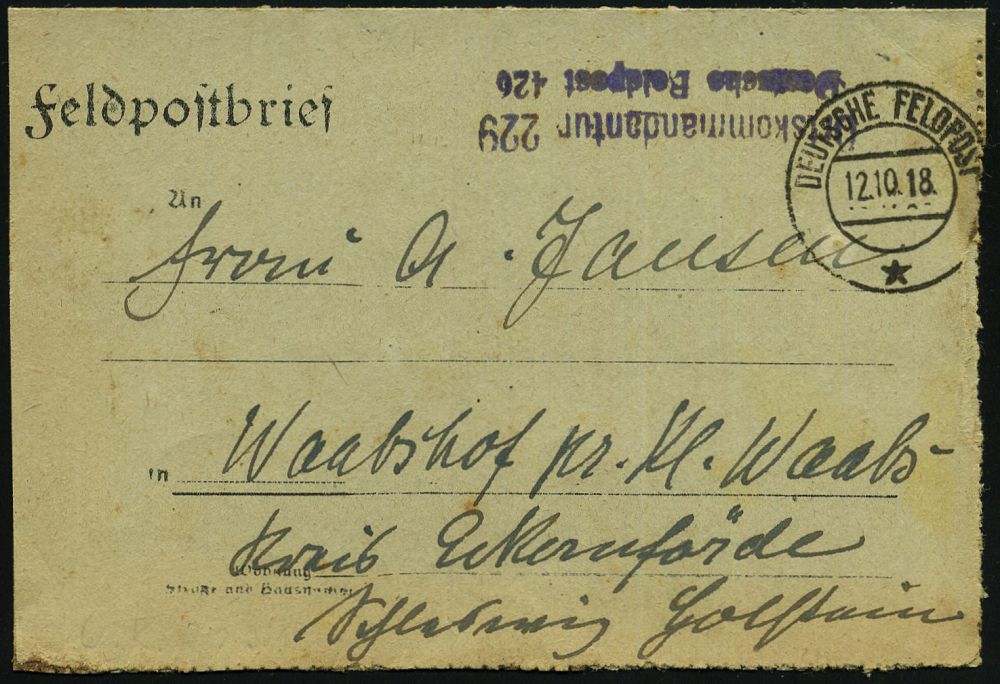 Feldpostbrief
Deutsche Feldpost 426
kommandantur 229
DEUTSCHE FELDPOST
12.10.18.
An
Frau A. Jansen
in Waabshof pr. Kl. Waabs-
Kreis Eckernförde
Wohnung
Straße und Hausnummer
Schleswig Holstein